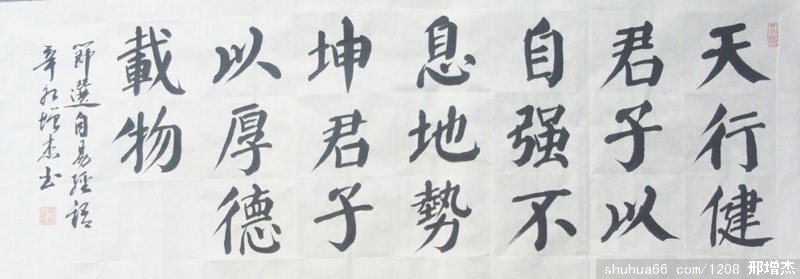 天行健
君子以
自强不
息地勢
坤君子
以厚德
載物
節選自易經語
增杰书
shuhua66.com/1208 邢增杰